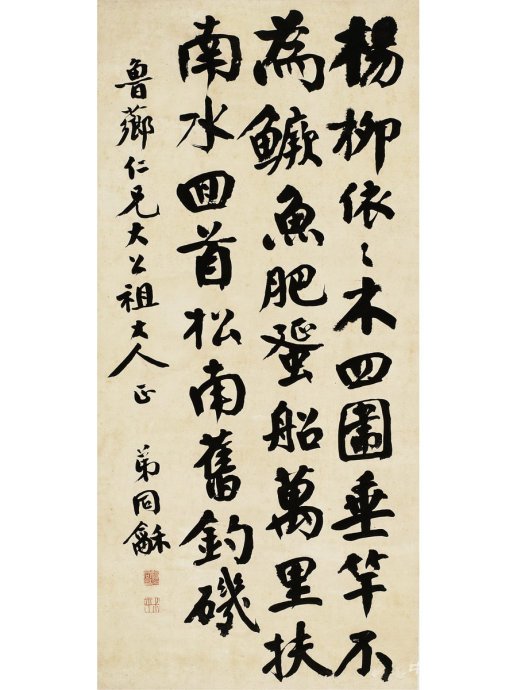 楊柳依〻木四圍垂竿不
為鱖魚肥蜑船萬里扶
南水囬首松南舊釣磯
魯薌仁兄大公祖大人正
弟同龢